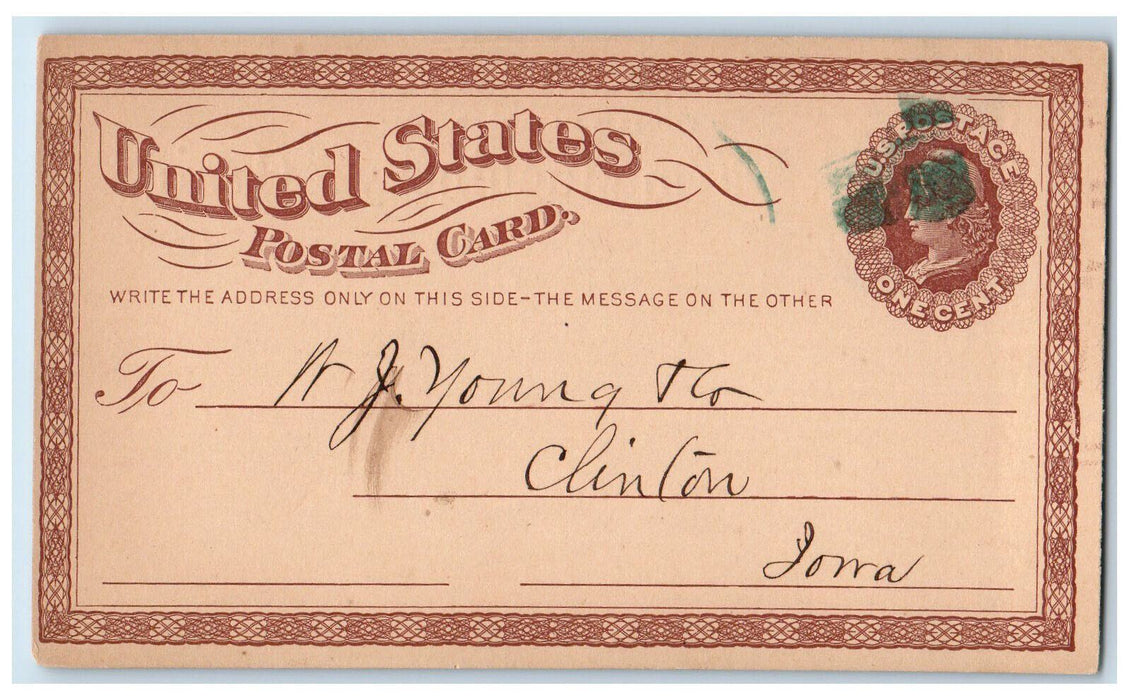 United States
POSTAL CARD.
U.S. POSTAGE
ONE CENT
WRITE THE ADDRESS ONLY ON THIS SIDE–THE MESSAGE ON THE OTHER
To W J. Young & Co
Clinton
Iowa